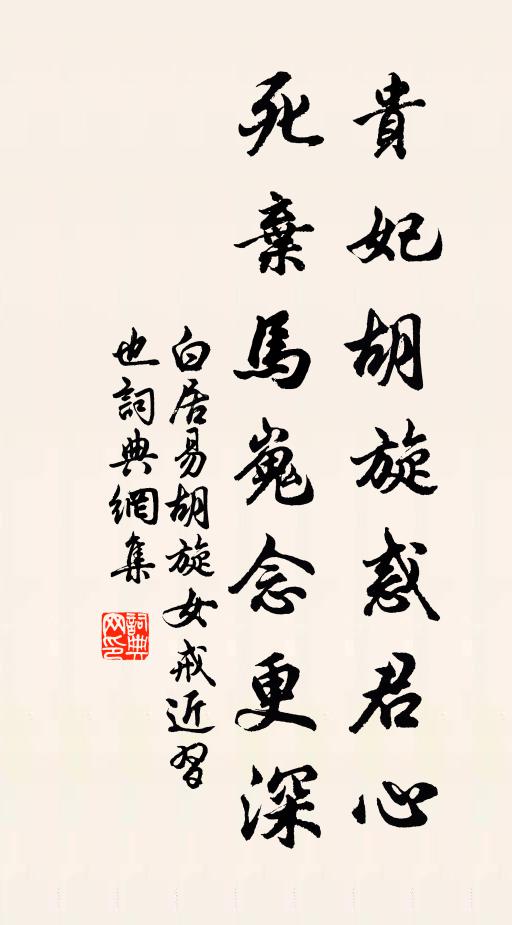 貴妃胡旋惑君心
死棄馬嵬念更深
白居易胡旋女戒近習
也詞典網集
詞典网印